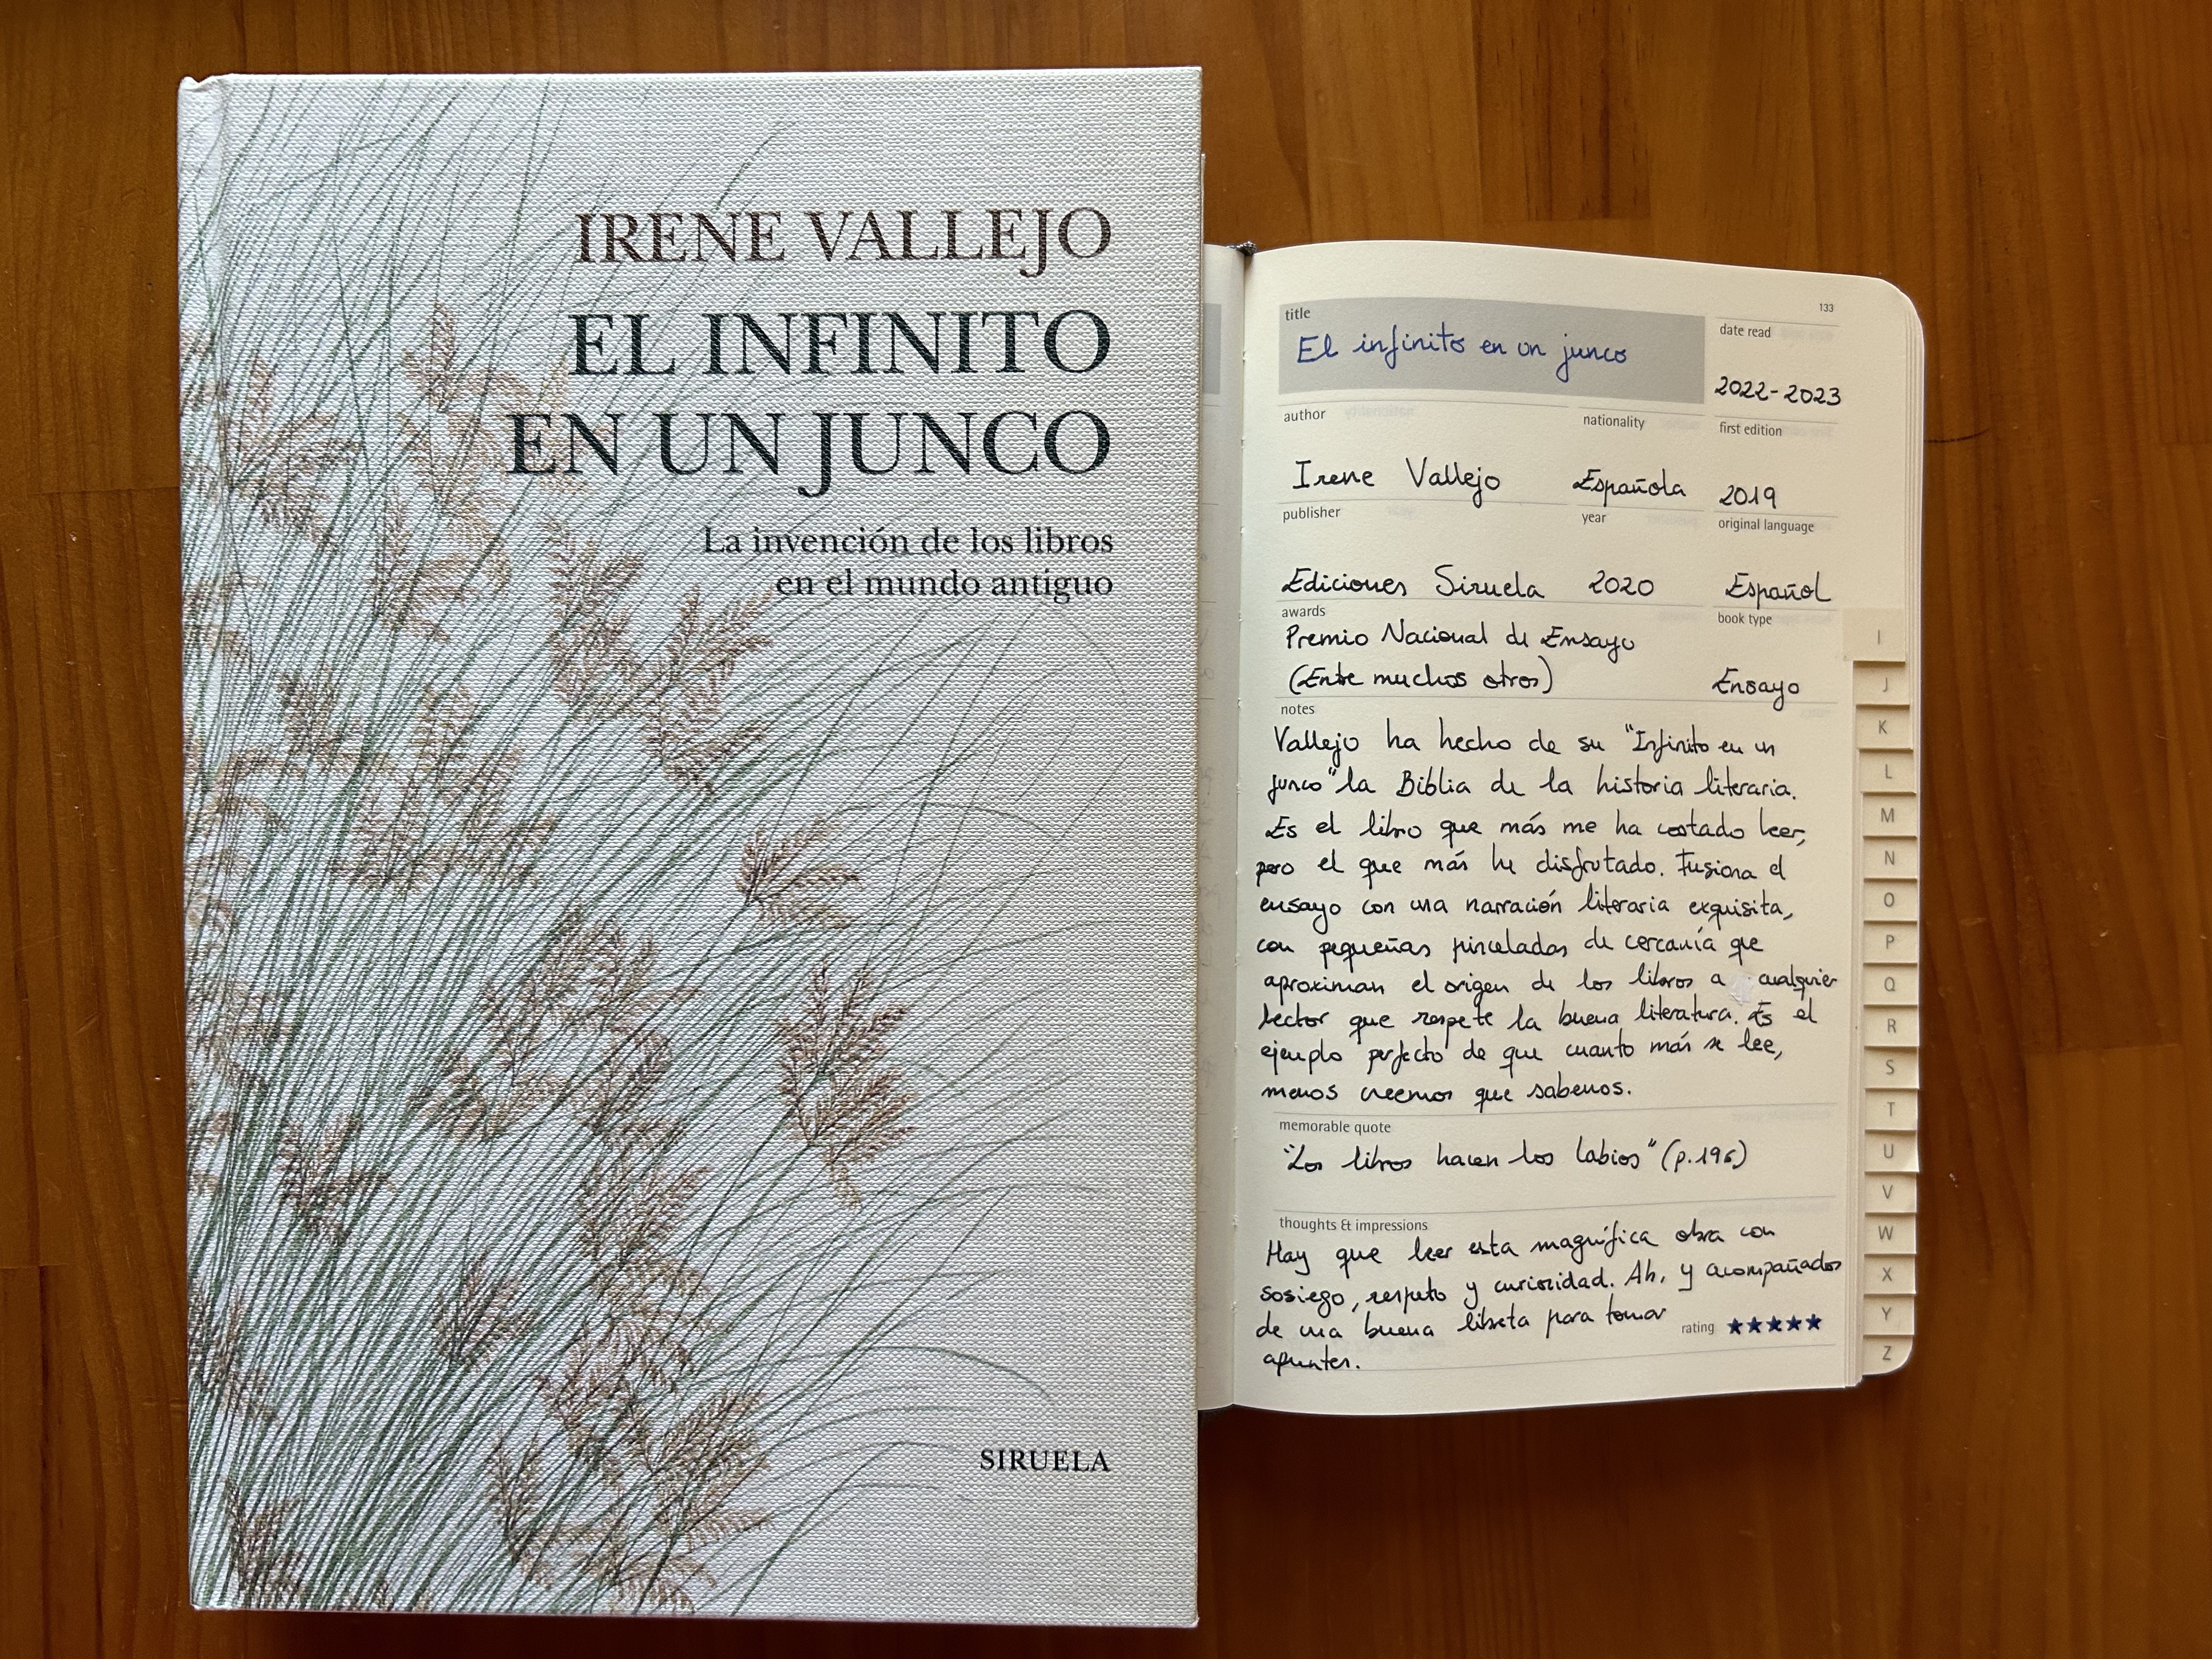 IRENE VALLEJO
EL INFINITO
EN UN JUNCO
La invención de los libros
en el mundo antiguo
SIRUELA
133
title
El infinito en un junco
date read
2022-2023
author
Irene Vallejo
nationality
Española
first edition
2019
publisher
Ediciones Siruela
year
2020
original language
Español
awards
Premio Nacional de Ensayo
(Entre muchos otros)
book type
Ensayo
notes
Vallejo ha hecho de su "Infinito en un
junco" la Biblia de la historia literaria.
Es el libro que más me ha costado leer,
pero el que más he disfrutado. Fusiona el
ensayo con una narración literaria exquisita,
con pequeñas pinceladas de cercanía que
aproximan el origen de los libros a cualquier
lector que respete la buena literatura. Es el
ejemplo perfecto de que cuanto más se lee,
menos creemos que sabemos.
memorable quote
"Los libros hacen los labios" (p.196)
thoughts & impressions
Hay que leer esta magnífica obra con
sosiego, respeto y curiosidad. Ah, y acompañados
de una buena libreta para tomar
apuntes.
rating ★★★★★
I
J
K
L
M
N
O
P
Q
R
S
T
U
V
W
X
Y
Z